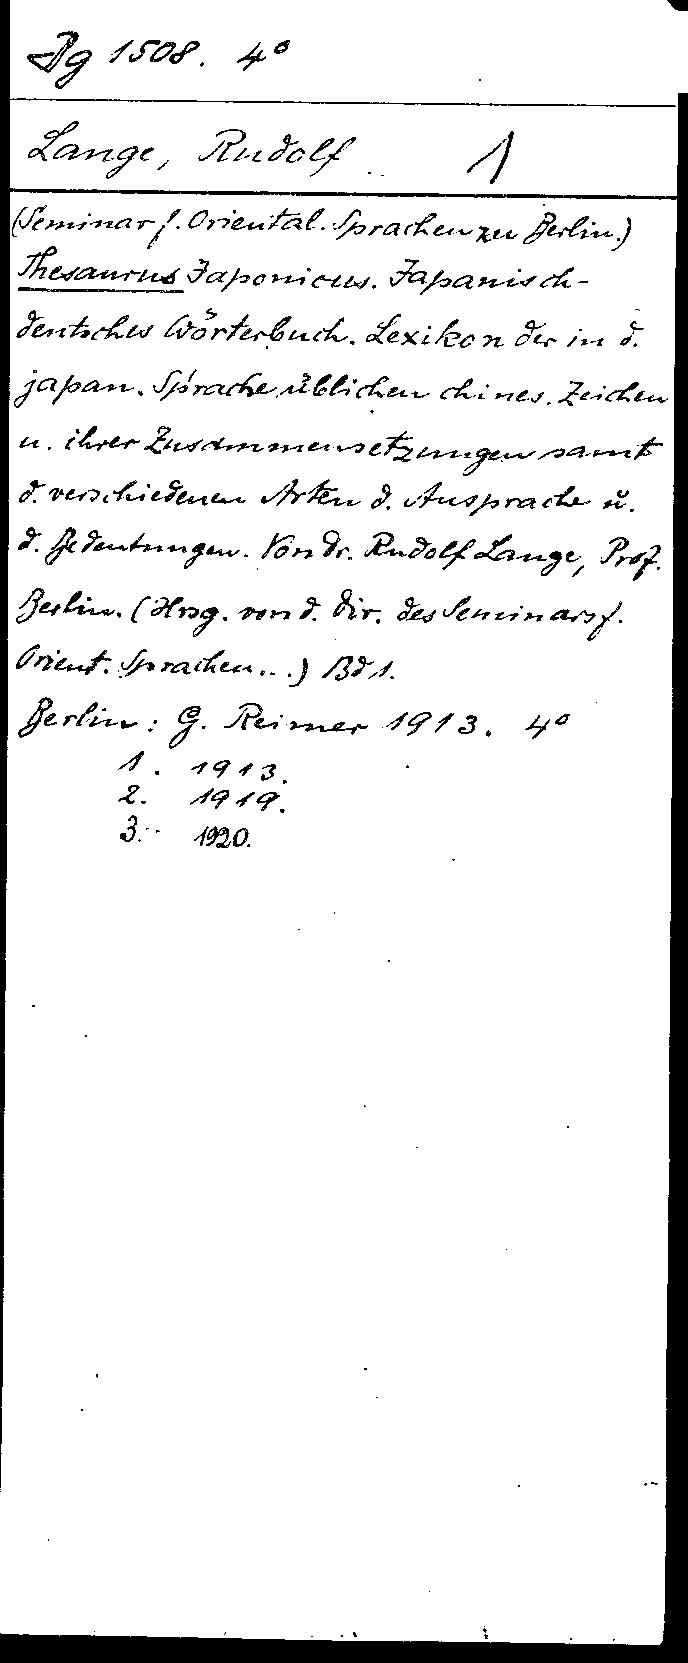 Bg 1508. 4º
Lange, Rudolf 1
(Seminar f. Oriental. Sprachen zu Berlin.)
Thesaurus Japonicus. Japanisch-
deutsches Wörterbuch. Lexikon der in d.
japan. Sprache üblichen chines. Zeichen
u. ihrer Zusammensetzungen samt
d. verschiedenen Arten d. Aussprache u.
d. Bedeutungen. Von Dr. Rudolf Lange, Prof.
Berlin. (Hrsg. von d. Dir. des Seminars f.
Orient. Sprachen...) Bd 1.
Berlin: G. Reimer 1913. 4º
1. 1913.
2. 1919.
3. 1920.